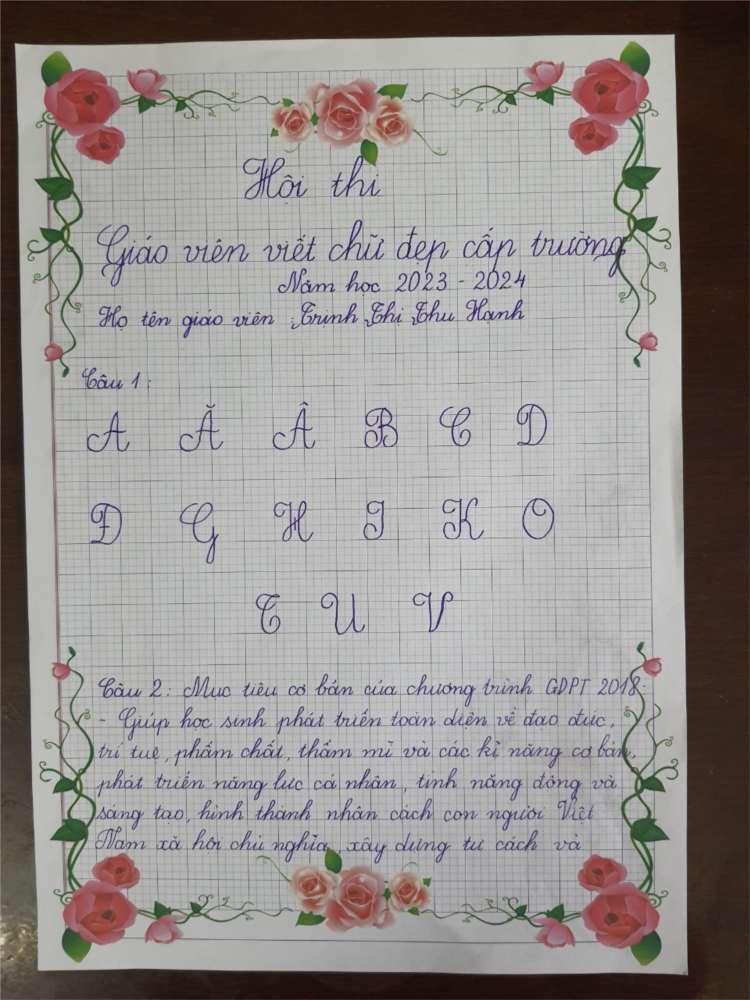 Hội thi
Giáo viên viết chữ đẹp cấp trường
Năm học 2023 - 2024
Họ tên giáo viên : Trịnh Thị Thu Hạnh
Câu 1:
A Ă Â B C D
Đ G H I K O
T U V
Câu 2: Mục tiêu cơ bản của chương trình GDPT 2018:
- Giúp học sinh phát triển toàn diện về đạo đức,
trí tuệ, phẩm chất, thẩm mĩ và các kĩ năng cơ bản,
phát triển năng lực cá nhân, tính năng động và
sáng tạo, hình thành nhân cách con người Việt
Nam xã hội chủ nghĩa, xây dựng tư cách và